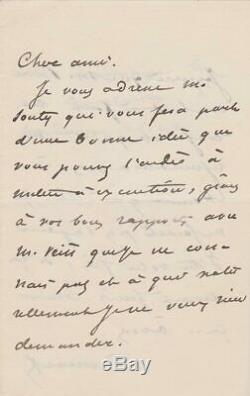 Cher ami.
Je vous adresse M.
qui vous fera part
d'une bonne idée que
vous pouvez l'aider à
mettre à exécution, grâce
à vos bons rapports avec
M. que je ne con-
nais pas et à qui natu-
rellement je ne veux rien
demander.
ebay